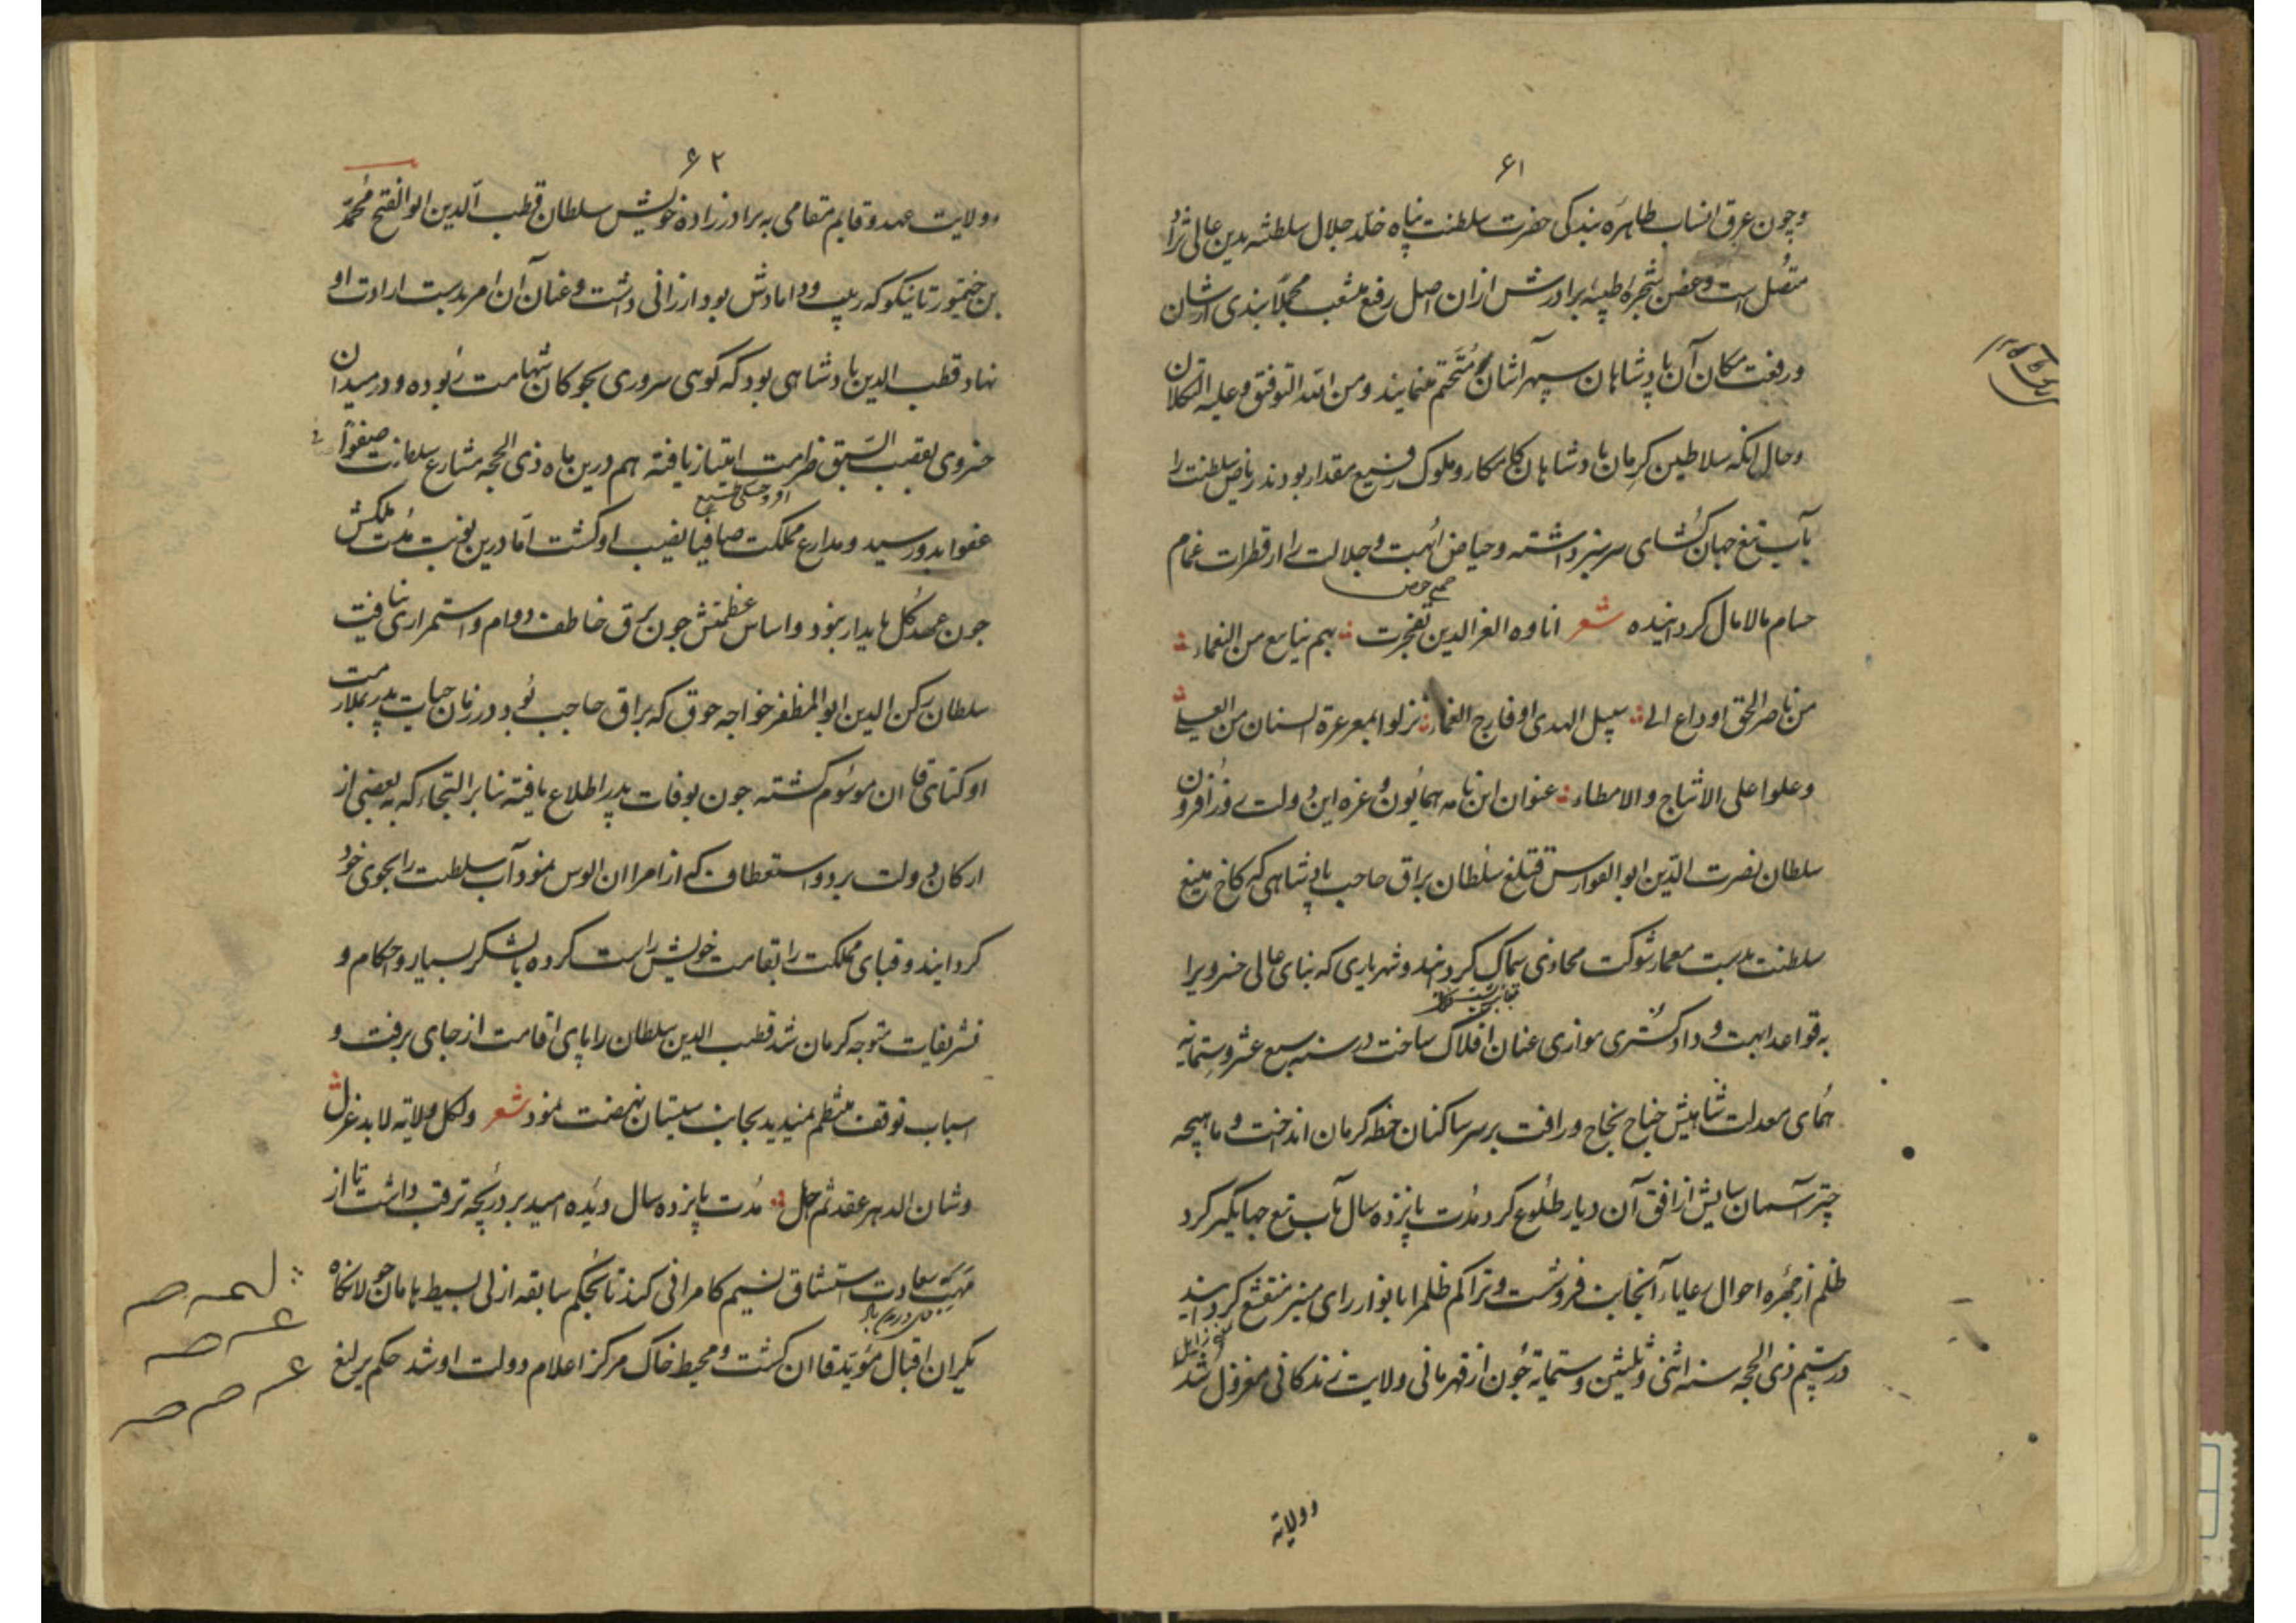 ۶۱
وچون عرق انساب طاهره بندکی حضرت سلطنت پناه خلد جلال سلطنته بدین عالی نژاد
متصل است و غصن شجره طیبه برادرش ازان اصل رفیع منشعب مجملا بندی از شان
ورفعت مکان آن پادشاهان سپهر آشان متحتم مینماید ومن الله التوفیق وعلیه التکلان
وحال انکه سلاطین کرمان پادشاهان کامکار وملوک رفیع مقدار بودند ریاض سلطنت را
بآب تیغ جهان کشای سرسبز داشته وحیاض ابهت وجلالت را از قطرات غمام
جمع حوض
حسام مالامال کردانیده شعر اناوه العز الدین تفجرت بهم ینابیع من النعماء
من ناصر الحق او داع الی سبیل الهدی او فارج الغماء نزلوا بمعرعرة السنان من العلی
وعلوا علی الاثباج والامطاء عنوان این نامه همایون وغره این دولت روز افزون
سلطان نصرت الدین ابو الفوارس قتلغ سلطان براق حاجب پادشاهی که کاخ منیع
سلطنت بدست معمار شوکت محاذی سماک کردانید وشهریاری که بنای عالی خسرویرا
به قواعد ابهت و دادکستری موازی عنان افلاک ساخت در سنه سبع عشر وستمایه
همای معدلت شاهیش جناح نجاح ورافت بر سر ساکنان خطه کرمان انداخت و ماهیچه
چتر آسمان سایش از افق آن دیار طلوع کرد مدت پانزده سال بآب تیغ جهانگیر کرد
ظلم از چهره احوال رعایاء آنجانب فروشست وتراکم ظلم را بانوار رای منیر منقشع کردانید
در بیستم ذی الحجه سنه اثنی وثلثین وستمایة چون از قهرمانی ولایت زندکانی معزول شد
دولایة
۶۲
وولایت عهد وقایم مقامی به برادرزاده خویش سلطان قطب الدین ابو الفتح محمد
بن خمیتور تاینکو که ربیب وداماداش بود ارزانی داشت وعنان آن امر بدست ارادت او
نهاد قطب الدین پادشاهی بود که کوی سروری بچوکان شهامت ربوده ودر میدان
خسروی بقصب السبق ظرامت امتیاز یافته هم درین ماه ذی الحجه مشارع سلطنت صفوا
عفوا بدو رسید ومدارع مملکت صافیا نصیب او کشت اما درین نوبت مدت ملکش
چون عهد کل پایدار نبود واساس عظمتش چون برق خاطف دوام واستمراری نیافت
سلطان رکن الدین ابو المظفر خواجه جوق که براق حاجب بود در زمان حیات پدر بملازمت
اوکتای قاان موسوم کشته چون بوفات پدر اطلاع یافته بنابر التجاء که به بعضی از
ارکان دولت برد واستعطاف که از امراان الوس نمود آب سلطنت را بجوی خود
کردانید وقبای مملکت را بقامت خویش راست کرده با لشکر بسیار واحکام و
تشریفات متوجه کرمان شد قطب الدین سلطان را پای اقامت از جای برفت و
اسباب توقف منتظم نمیدید بجانب سیستان نهضت نمود شعر ولکل ولایة لابد عزل
وشان الدهر عقد ثم حل مدت پانزده سال دیده امید بر دریچه ترقب داشت تا از
مهب سعادت استنشاق نسیم کامرانی کند تا بحکم سابقه ازلی بسیط هامان جولانکاه
یکران اقبال مؤید قاان کشت ومحیط خاک مرکز اعلام دولت او شد حکم یرلیغ